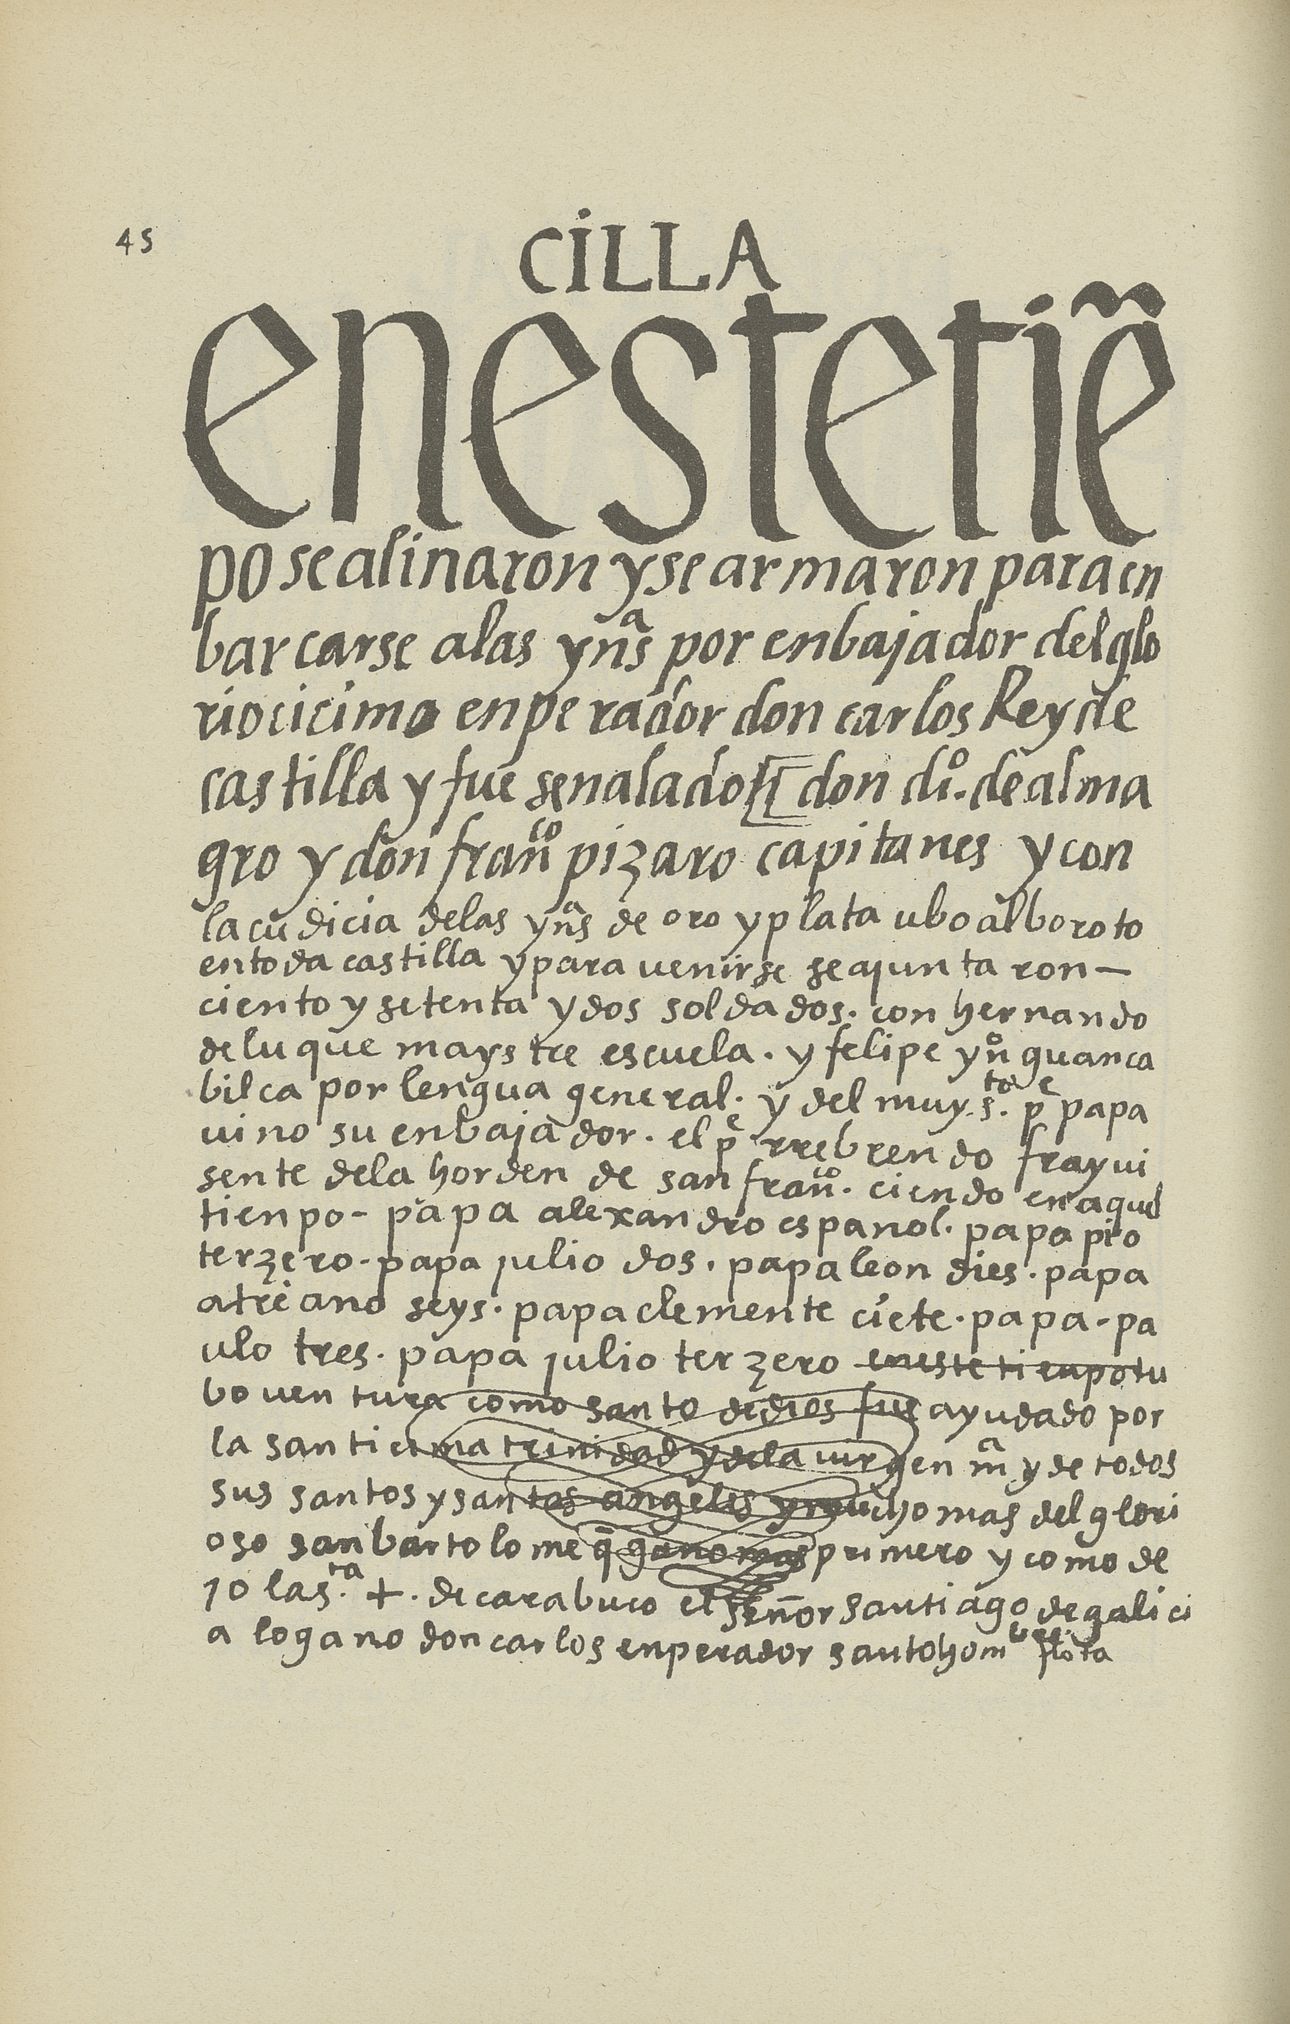 45
CiLLA
enestetiẽ
po se alinaron y se armaron para en
barcarse a las ynªs por enbajador del glo
riocicimo enperador don carlos Rey de
castilla y fue senalado don diº. de alma
gro y don franco pizaro capitanes y con
la cudicia de las ynªs de oro y plata ubo alboroto
en toda castilla y para venirse se ajuntaron —
ciento y setenta y dos soldados. con hernando
de luque maystre escuela. y felipe ynº guanca
bilca por lengua general. y del muy sto. pe papa
vino su enbajador. el pe rrebrendo fray vi
sente dela horden de san franco. ciendo en aquel
tienpo - papa alexandro espanol. papa pio
terzero - papa julio dos. papa leon dies. papa
atreano seys. papa clemente ciete. papa - pa
ulo tres. papa julio terzero en este tienpo tu
bo ventura como santo de dios fue ayudado por
la santicima trinidad y de la virgen mª y de todos
sus santos y santos angeles y mucho mas del glori
oso san bartolome q̃ gano mas primero y como de
jo la s.ta +. de carabuco el señor santiago de galici
a lo gano don carlos enperador santo hombre